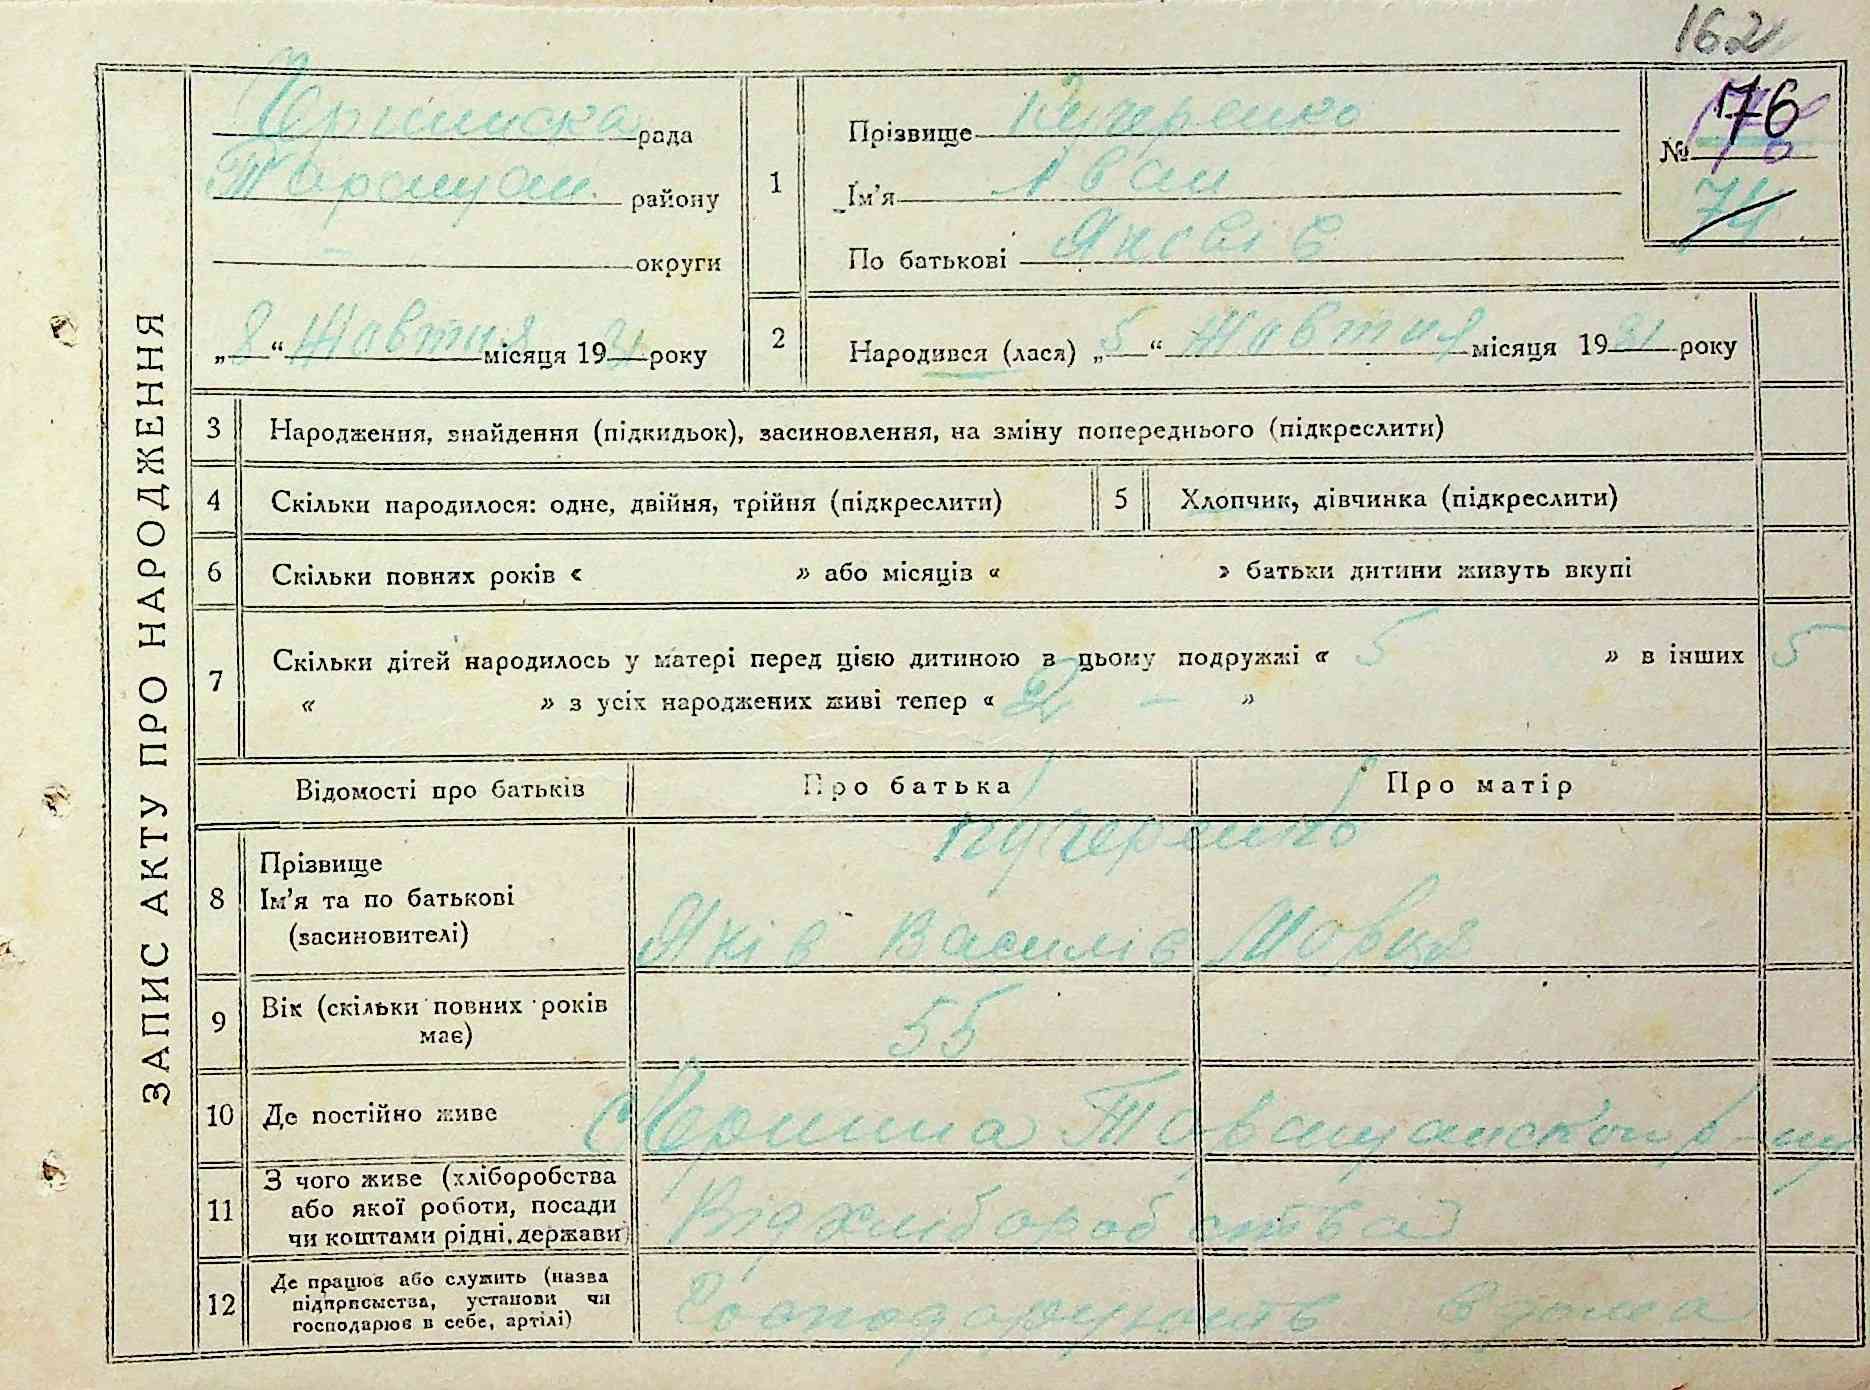 162
ЗАПИС АКТУ ПРО НАРОДЖЕННЯ
рада
району
— округи
„8“ Жовтня місяця 1931 року
1
Прізвище Кучеренко
Ім'я Іван
По батькові Яковів
№ 76
74
2
Народився (лася) „5“ Жовтня місяця 1931 року
3 Народження, знайдення (підкидьок), засиновлення, на зміну попереднього (підкреслити)
4 Скільки народилося: одне, двійня, трійня (підкреслити)
5 Хлопчик, дівчинка (підкреслити)
6 Скільки повних років « » або місяців « » батьки дитини живуть вкупі
7 Скільки дітей народилось у матері перед цією дитиною в цьому подружжі « 5 » в інших 5
« » з усіх народжених живі тепер « 2 — »
Відомості про батьків Про батька Про матір
8 Прізвище
Ім'я та по батькові
(засиновителі)
Кучеренко
Яків Василів
9 Вік (скільки повних років
має)
55
10 Де постійно живе
11 З чого живе (хліборобства
або якої роботи, посади
чи коштами рідні, держави)
Від хліборобства
12 Де працює або служить (назва
підприємства, установи чи
господарює в себе, артілі)
Господарюють вдома